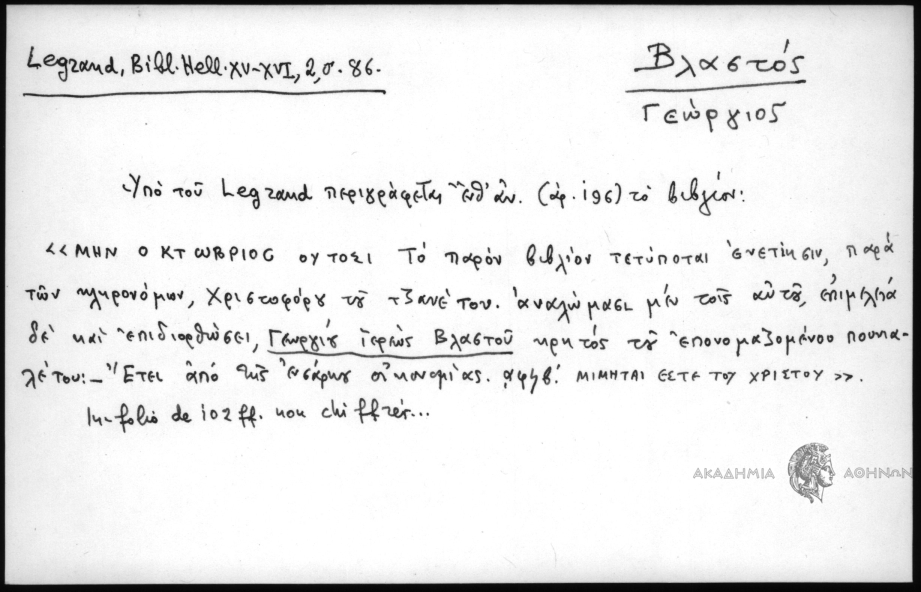 Legrand, Bibl. Hell. XV-XVI, 2, σ. 86.
Βλαστός
Γεώργιος
Ὑπὸ τοῦ Legrand περιγράφεται ἐνθ' ἀν. (ἀρ. 196) τὸ βιβλίον:
<<ΜΗΝ ΟΚΤΩΒΡΙΟC ΟΥΤΟΣΙ Τὸ παρὸν βιβλίον τετύποται ἐνετίησιν, παρὰ
τῶν κληρονόμων, Χριστοφόρου τοῦ τζανέτου. ἀναλώμασι μὲν τοῖς αὐτοῦ, ἐπιμελείᾳ
δὲ καὶ ἐπιδιορθώσει, Γεωργίου ἱερέως Βλαστοῦ κρητός τοῦ ἐπονομαζομένου πουνια-
λέτου:- Ἔτει ἀπὸ τῆς ἐνσάρκου οἰκονομίας. ͵αφϟβ'. ΜΙΜΗΤΑΙ ΕΣΤΕ ΤΟΥ ΧΡΙΣΤΟΥ >>.
In-folio de 102 ff. non chiffrés...
ΑΚΑΔΗΜΙΑ ΑΘΗΝΩΝ